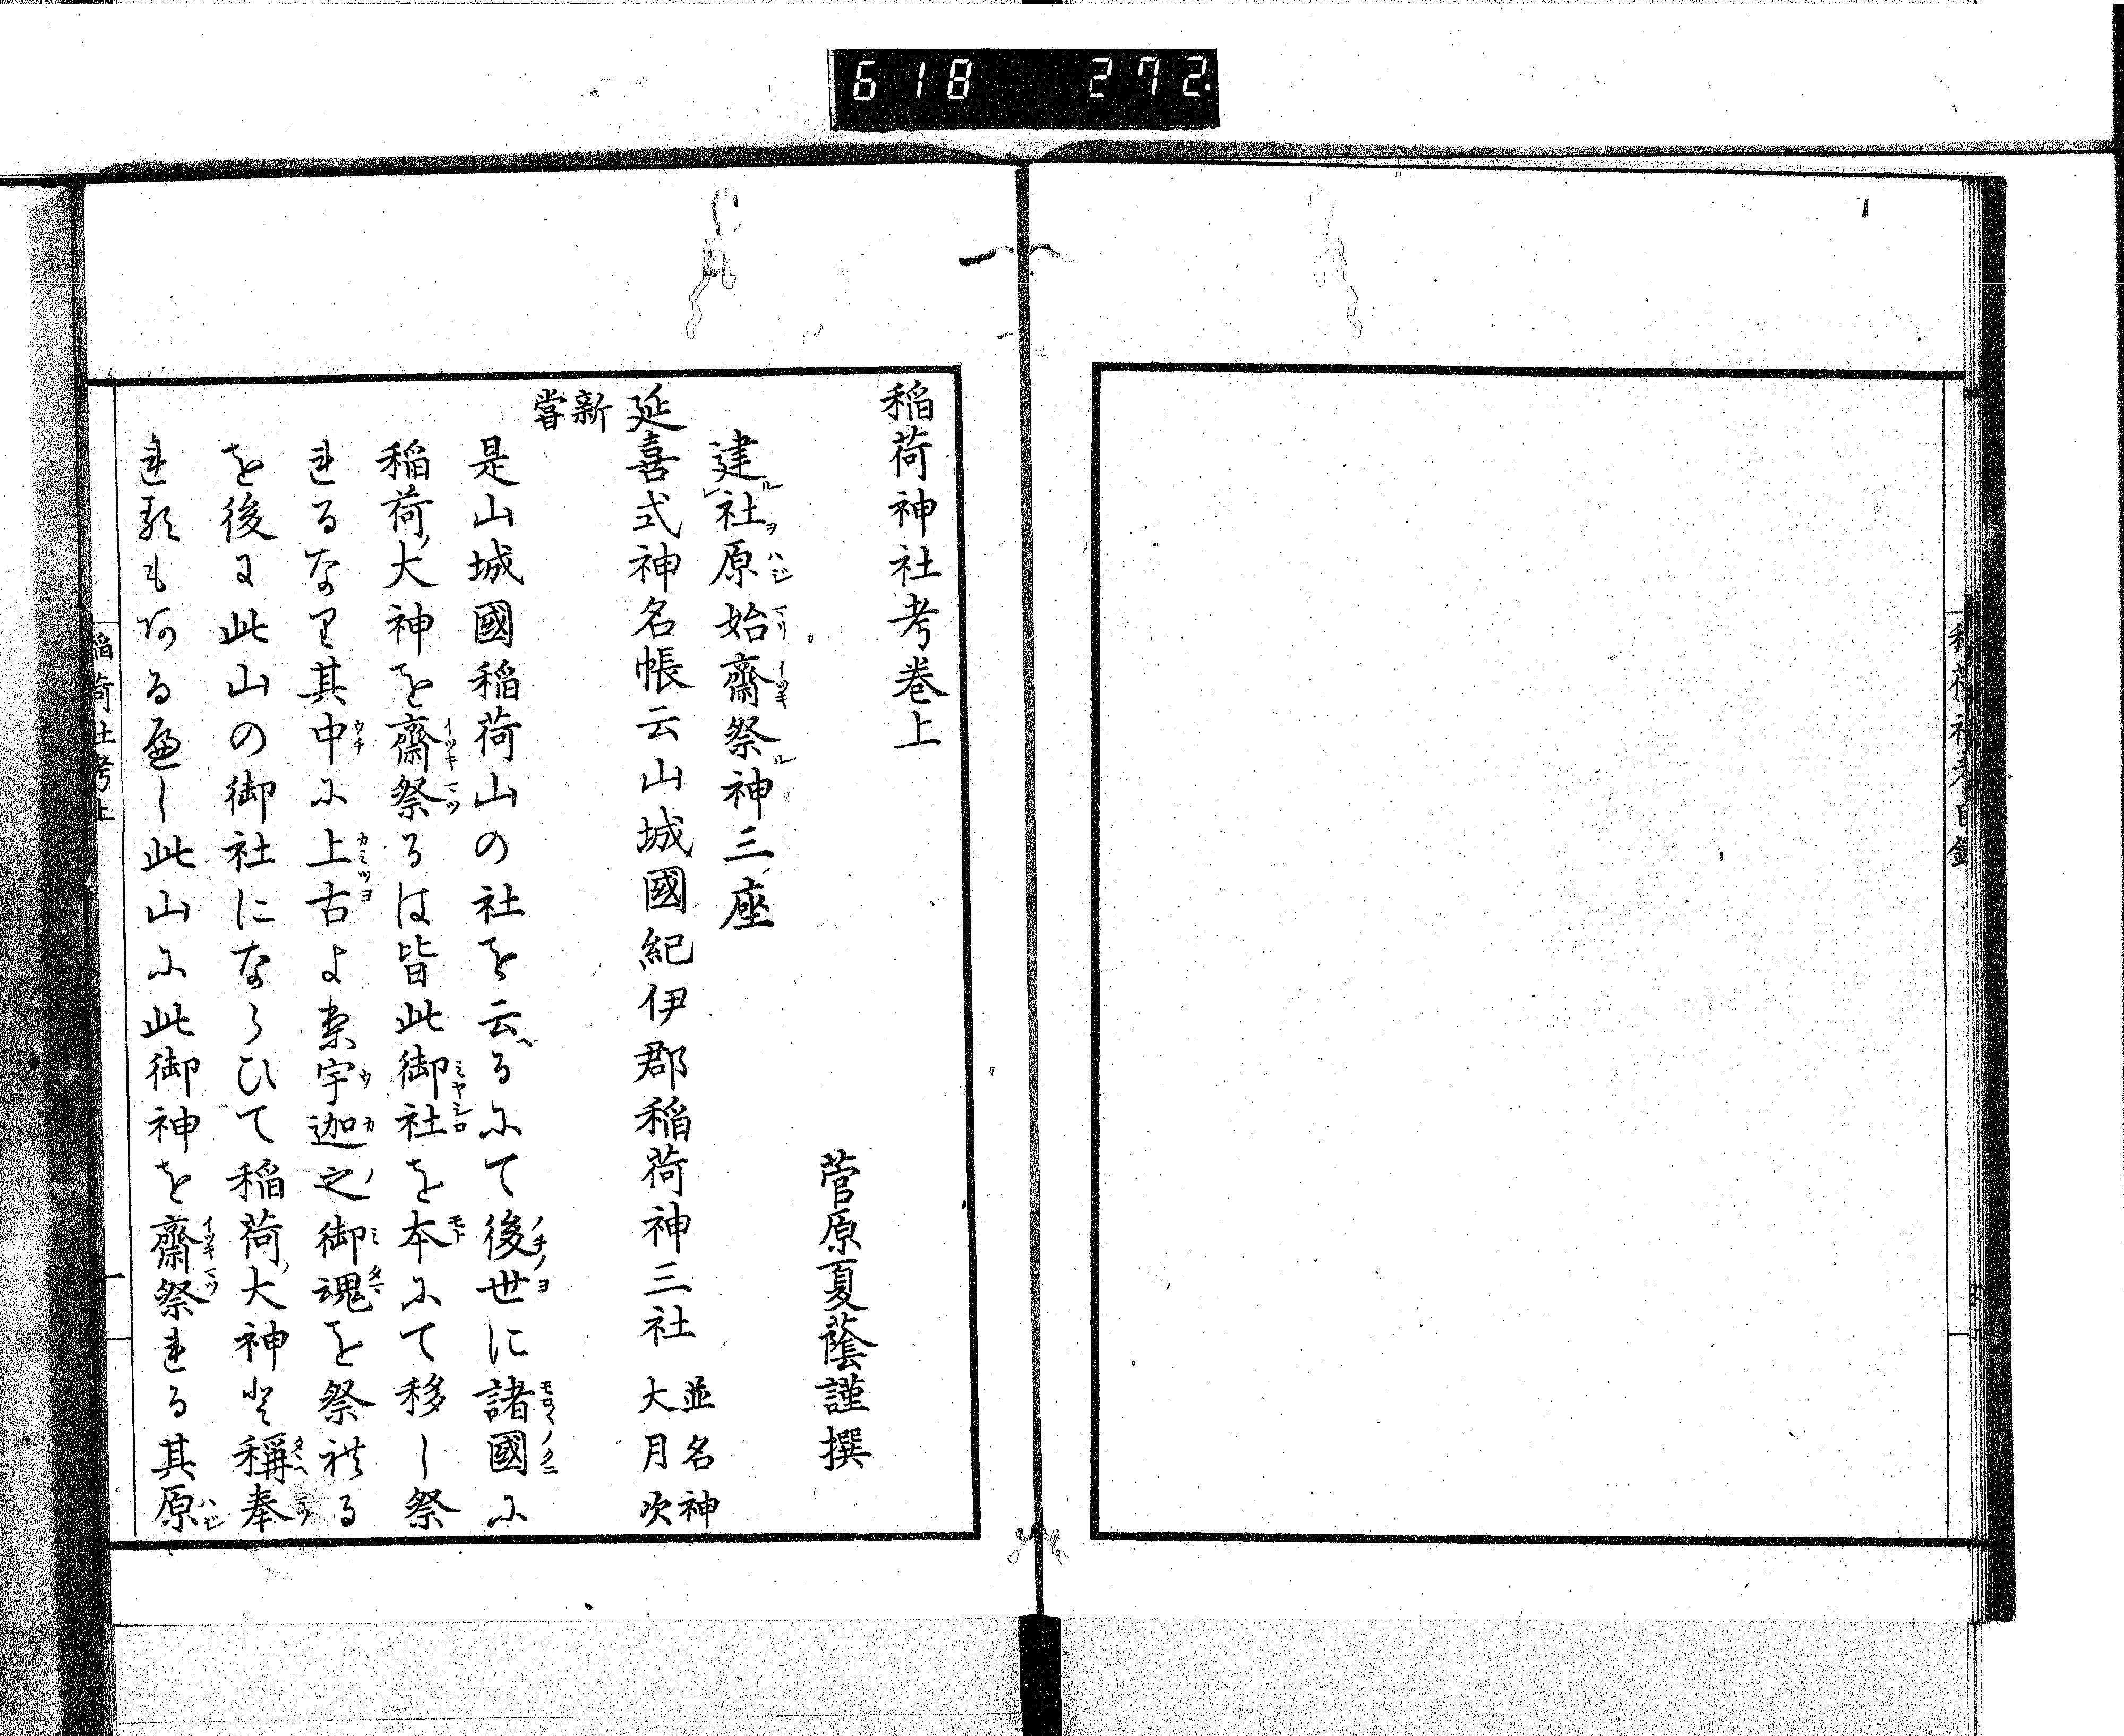 618 272.
稲荷神社考目錄
稲荷神社考卷上
菅原夏蔭謹撰
建社原始齋祭神三座
延喜式神名帳云山城國紀伊郡稲荷神三社 並名神大月次
新嘗
是山城國稲荷山の社を云へるにて後世に諸國に
稲荷ノ大神を齋祭るは皆此御社を本にて移し祭
れるなり其中に上古よ宇迦之御魂を祭れる
を後に此山の御社にならひて稲荷ノ大神と稱奉
れるもあるべし此山に此御神を齋祭れる其原
稲荷社考上 一